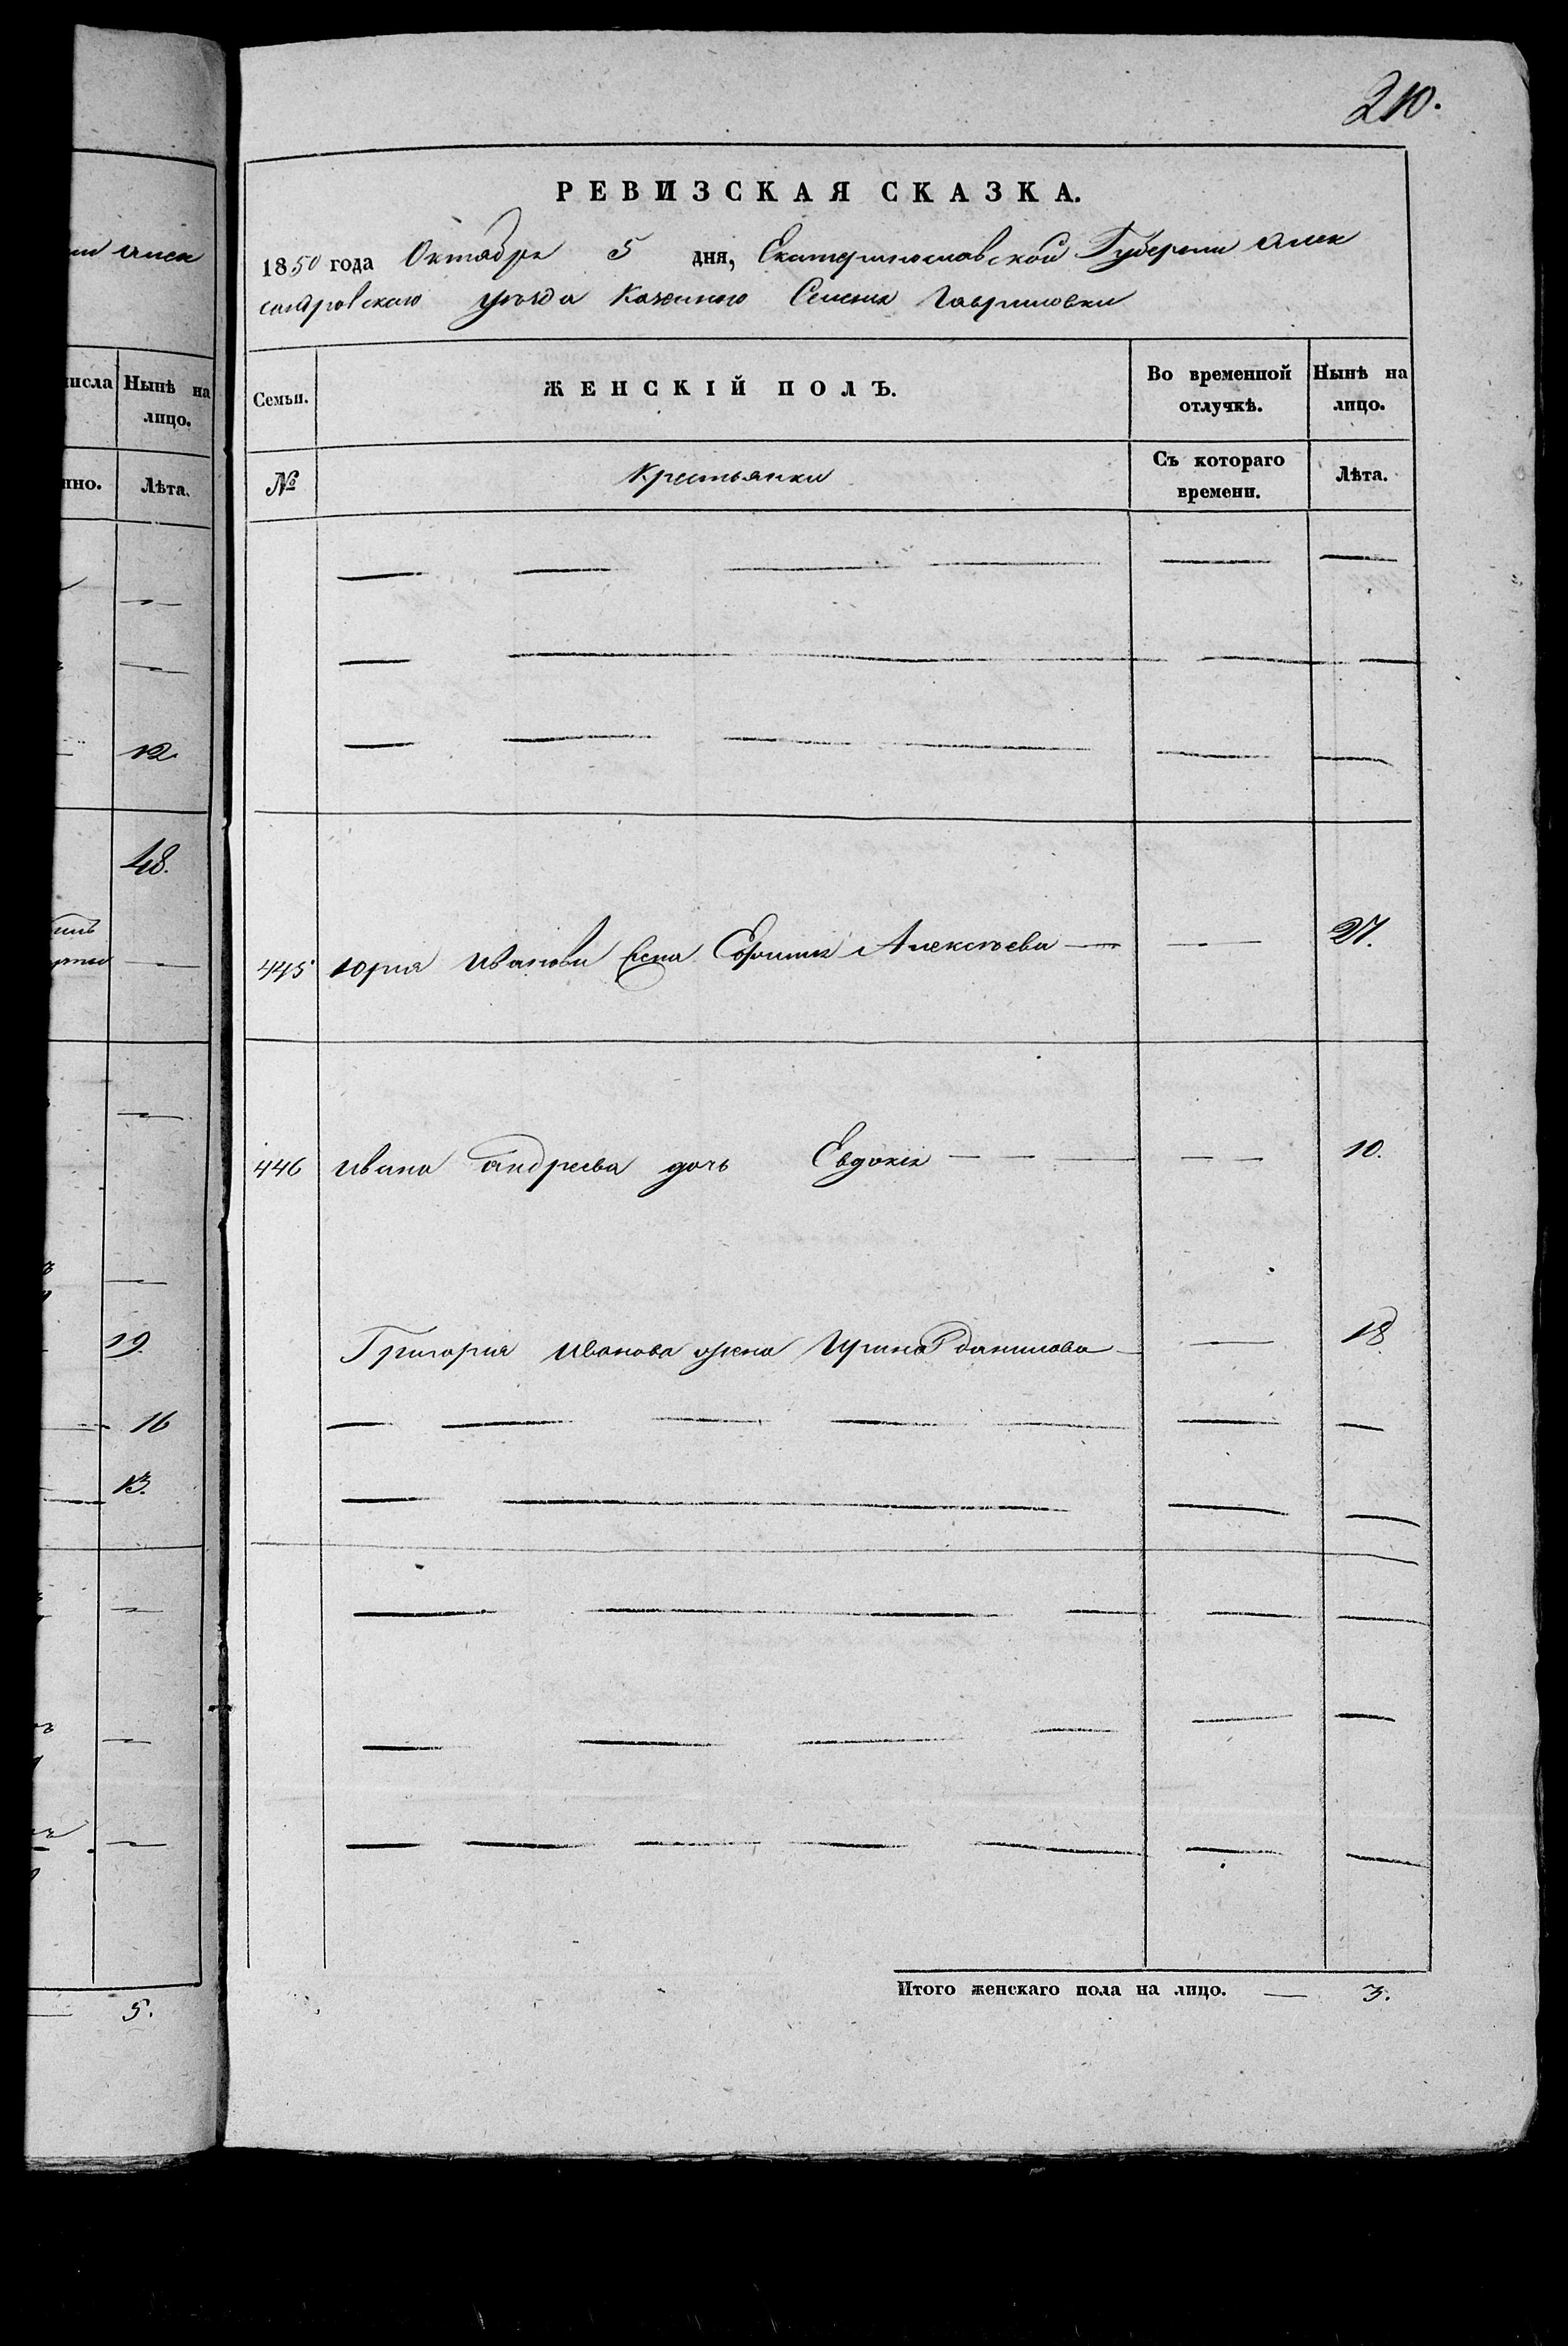 210.
РЕВИЗСКАЯ СКАЗКА.
1850 года Октября 5 дня, Екатеринославской Губернии Алек
сандровскаго уѣзда Казеннаго Селенія Гавриловки
Семьи.
ЖЕНСКІЙ ПОЛЪ.
Во временной отлучкѣ.
Нынѣ на лицо.
№
Крестьянки
Съ котораго времени.
Лѣта.
445 Юрия Иванова жена Алексѣева — — 27.
446 Ивана Андреева дочь Евдокія — — — — — 10.
Григорія Иванова жена Ирина Данилова — — 18
Итого женскаго пола на лицо. — 3.
числа
Нынѣ на
лицо.
Лѣта.
12
48.
19.
16
13.
5.